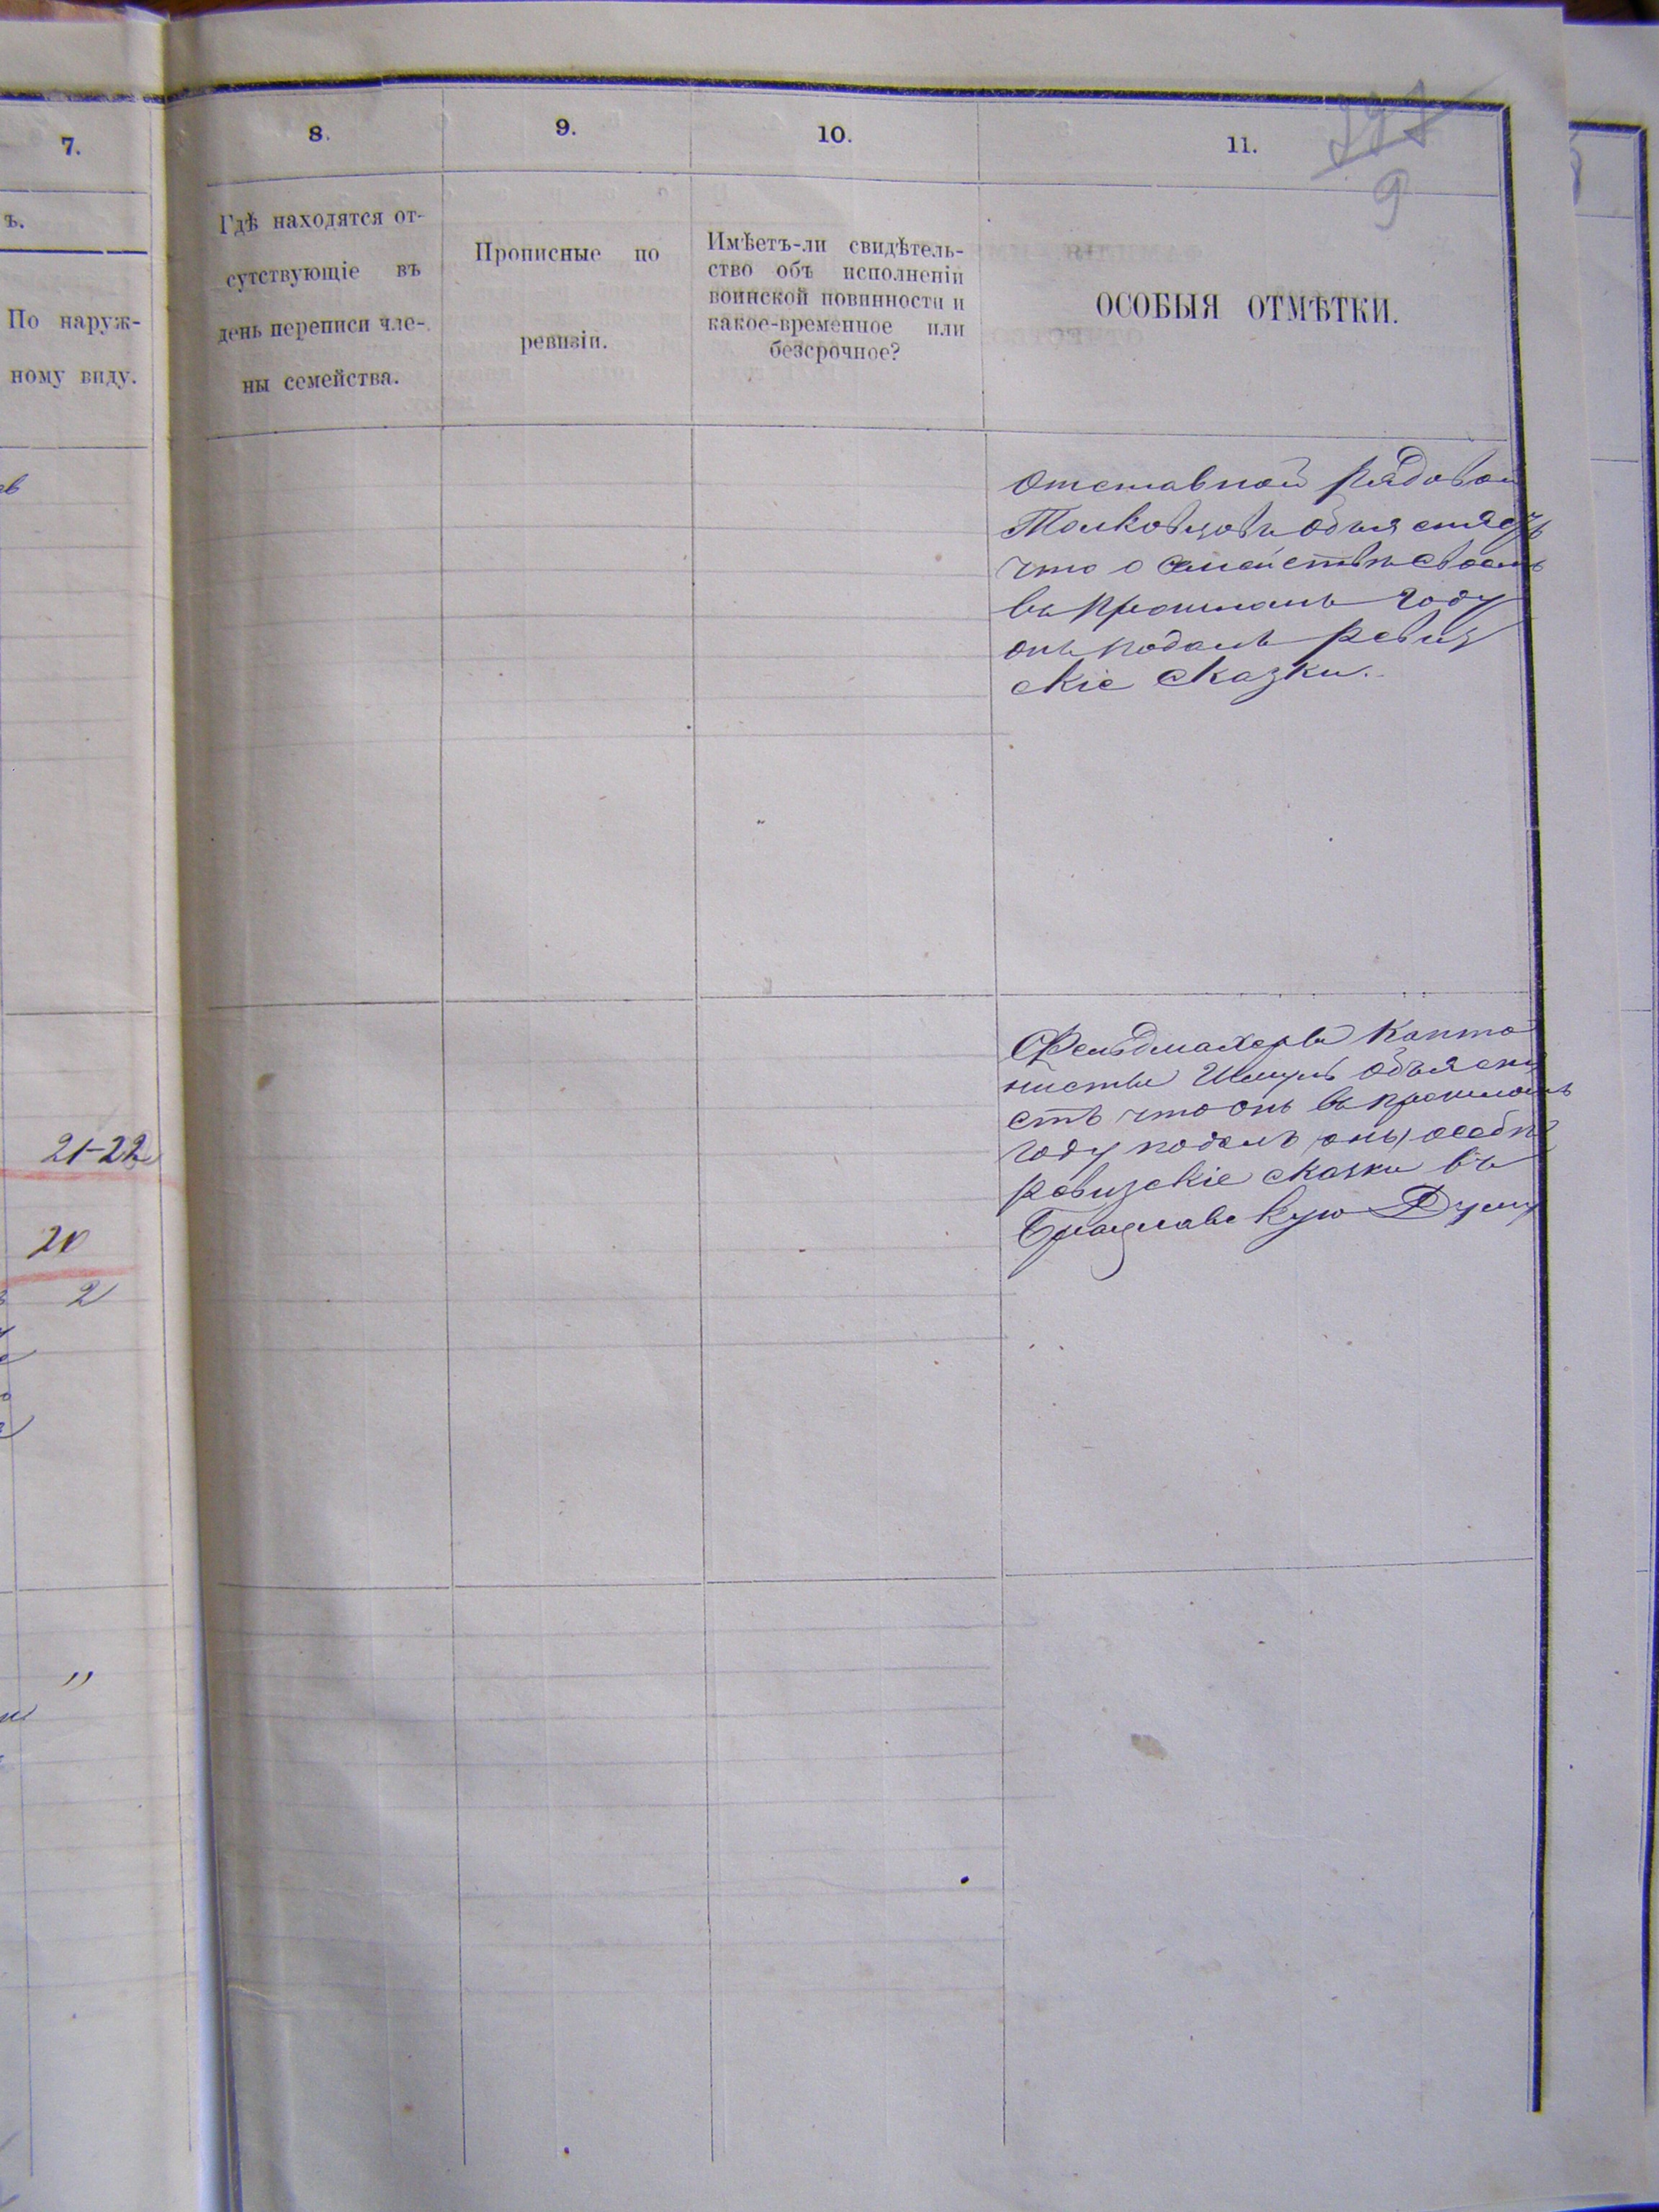 7.
8.
9.
10.
11.
9
ъ.
По наруж-
ному виду.
Гдѣ находятся от-
сутствующіе въ
день переписи чле-
ны семейства.
Прописные по
ревизіи.
Имѣетъ-ли свидѣтель-
ство объ исполненіи
воинской повинности и
какое-временное или
безсрочное?
ОСОБЫЯ ОТМѢТКИ.
Отставной рядовой
что о семействѣ своемъ
въ прошломъ году
онъ подалъ ревиз
скіе сказки.
Фельдмахеръ Канто
нистъ Шмуль объясни
етъ что онъ въ прошломъ
году подалъ онъ особыя
ревизскіе сказки въ
Брацлавскую Думу
21-22
20
2
"